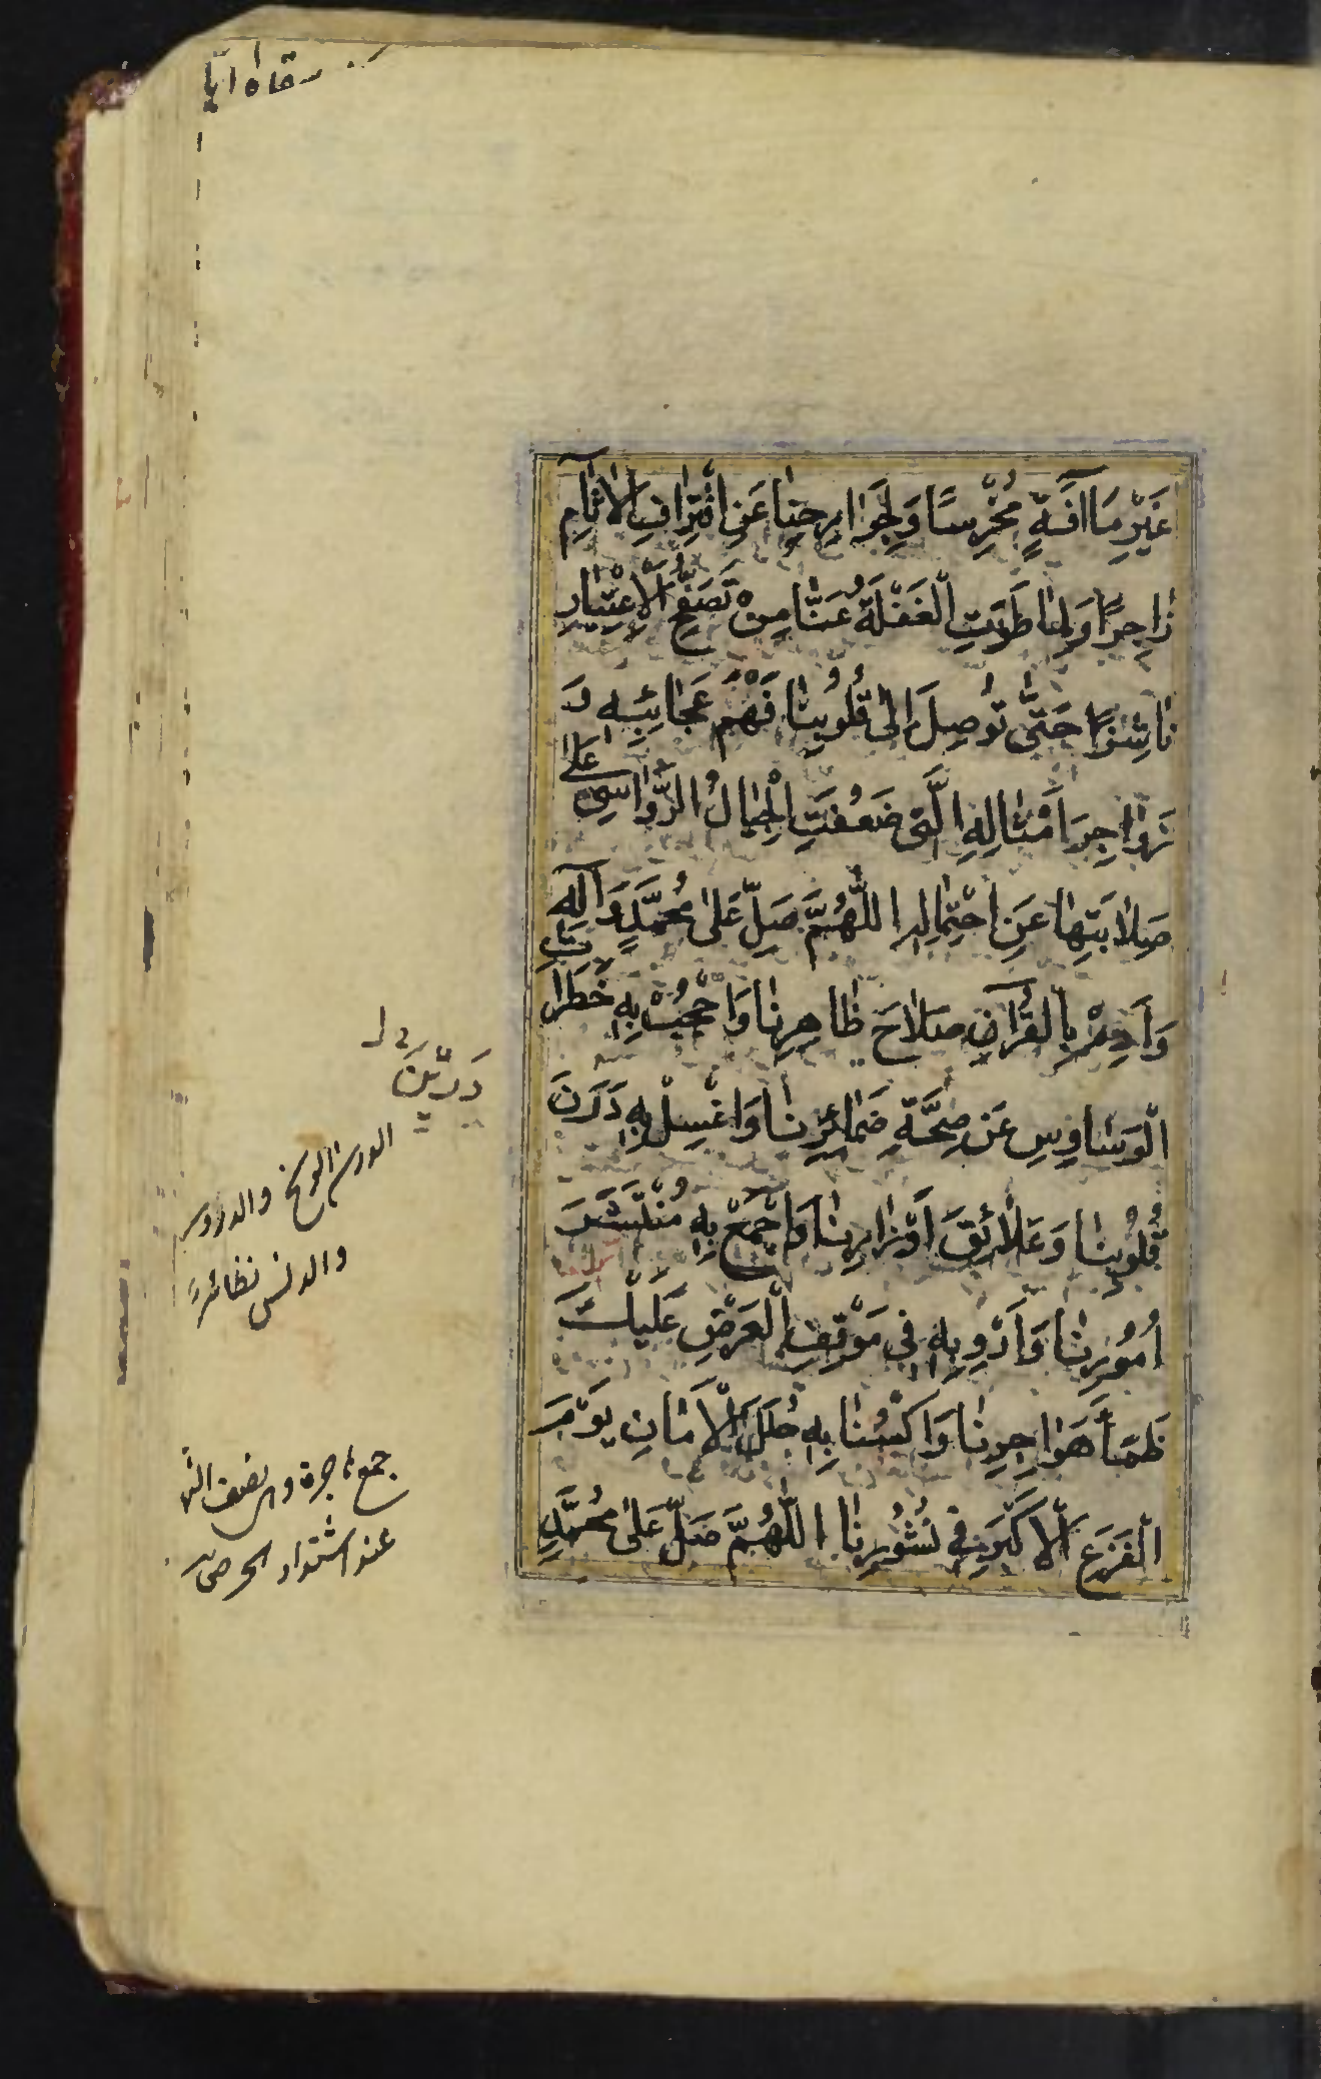 غَيْرِ مَا آفَةٍ مُخْرِسًا وَلِجَوَارِحِنَا عَنِ اقْتِرَافِ الْآثَامِ
زَاجِرًا وَلِمَا طَوَتِ الْغَفْلَةُ عَنَّا مِنْ تَصَفُّحِ الْاِعْتِبَارِ
نَاشِرًا حَتَّى تُوصِلَ اِلَى قُلُوبِنَا فَهْمَ عَجَائِبِهِ وَ
زَوَاجِرَ اَمْثَالِهِ الَّتِي ضَعُفَتِ الْجِبَالُ الرَّوَاسِي عَلَى
صَلَابَتِهَا عَنِ احْتِمَالِهِ اللَّهُمَّ صَلِّ عَلَى مُحَمَّدٍ وَآلِهِ
وَاَدِمْ بِالْقُرْآنِ صَلَاحَ ظَاهِرِنَا وَاحْجُبْ بِهِ خَطَرَاتِ
الْوَسَاوِسِ عَنْ صِحَّةِ ضَمَائِرِنَا وَاغْسِلْ بِهِ دَرَنَ
قُلُوبِنَا وَعَلَائِقَ اَوْزَارِنَا وَاجْمَعْ بِهِ مُنْتَشَرَ
اُمُورِنَا وَاَرْوِ بِهِ فِي مَوْقِفِ الْعَرْضِ عَلَيْكَ
ظَمَأَ هَوَاجِرِنَا وَاكْسُنَا بِهِ حُلَلَ الْاَمَانِ يَوْمَ
الْفَزَعِ الْاَكْبَرِ فِي نُشُورِنَا اللَّهُمَّ صَلِّ عَلَى مُحَمَّدٍ
الدرن الوسخ والدروس
والدنس نظائر
جمع هاجرة وهي نصف النهار
عند اشتداد الحر ص